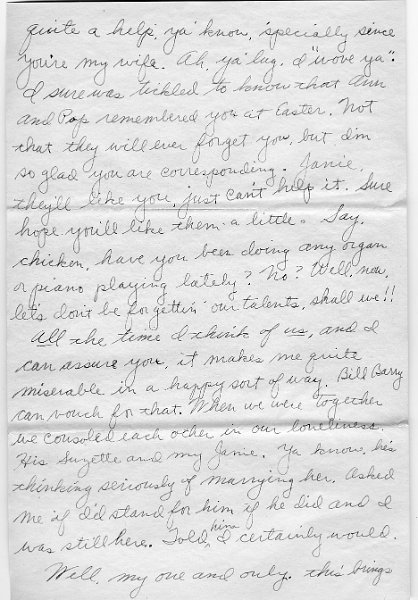 quite a help, ya' know, 'specially since
you're my wife. Ah, ya' lug. I "wove ya".
I sure was tickled to know that Ann
and Pop remembered you at Easter. Not
that they will ever forget you, but I'm
so glad you are corresponding. Janie,
they'll like you, just can't help it. Sure
hope you'll like them a little. Say,
chicken, have you been doing any organ
or piano playing lately? No? Well, now,
let's don't be forgettin' our talents, shall we!!
All the time I think of us, and I
can assure you, it makes me quite
miserable in a happy sort of way. Bill Barry
can vouch for that. When we were together
we consoled each other in our loneliness.
His Suzette and my Janie. Ya know, he's
thinking seriously of marrying her. Asked
me if I'd stand for him if he did and I
was still here. Told him I certainly would.
Well, my one and only, this brings